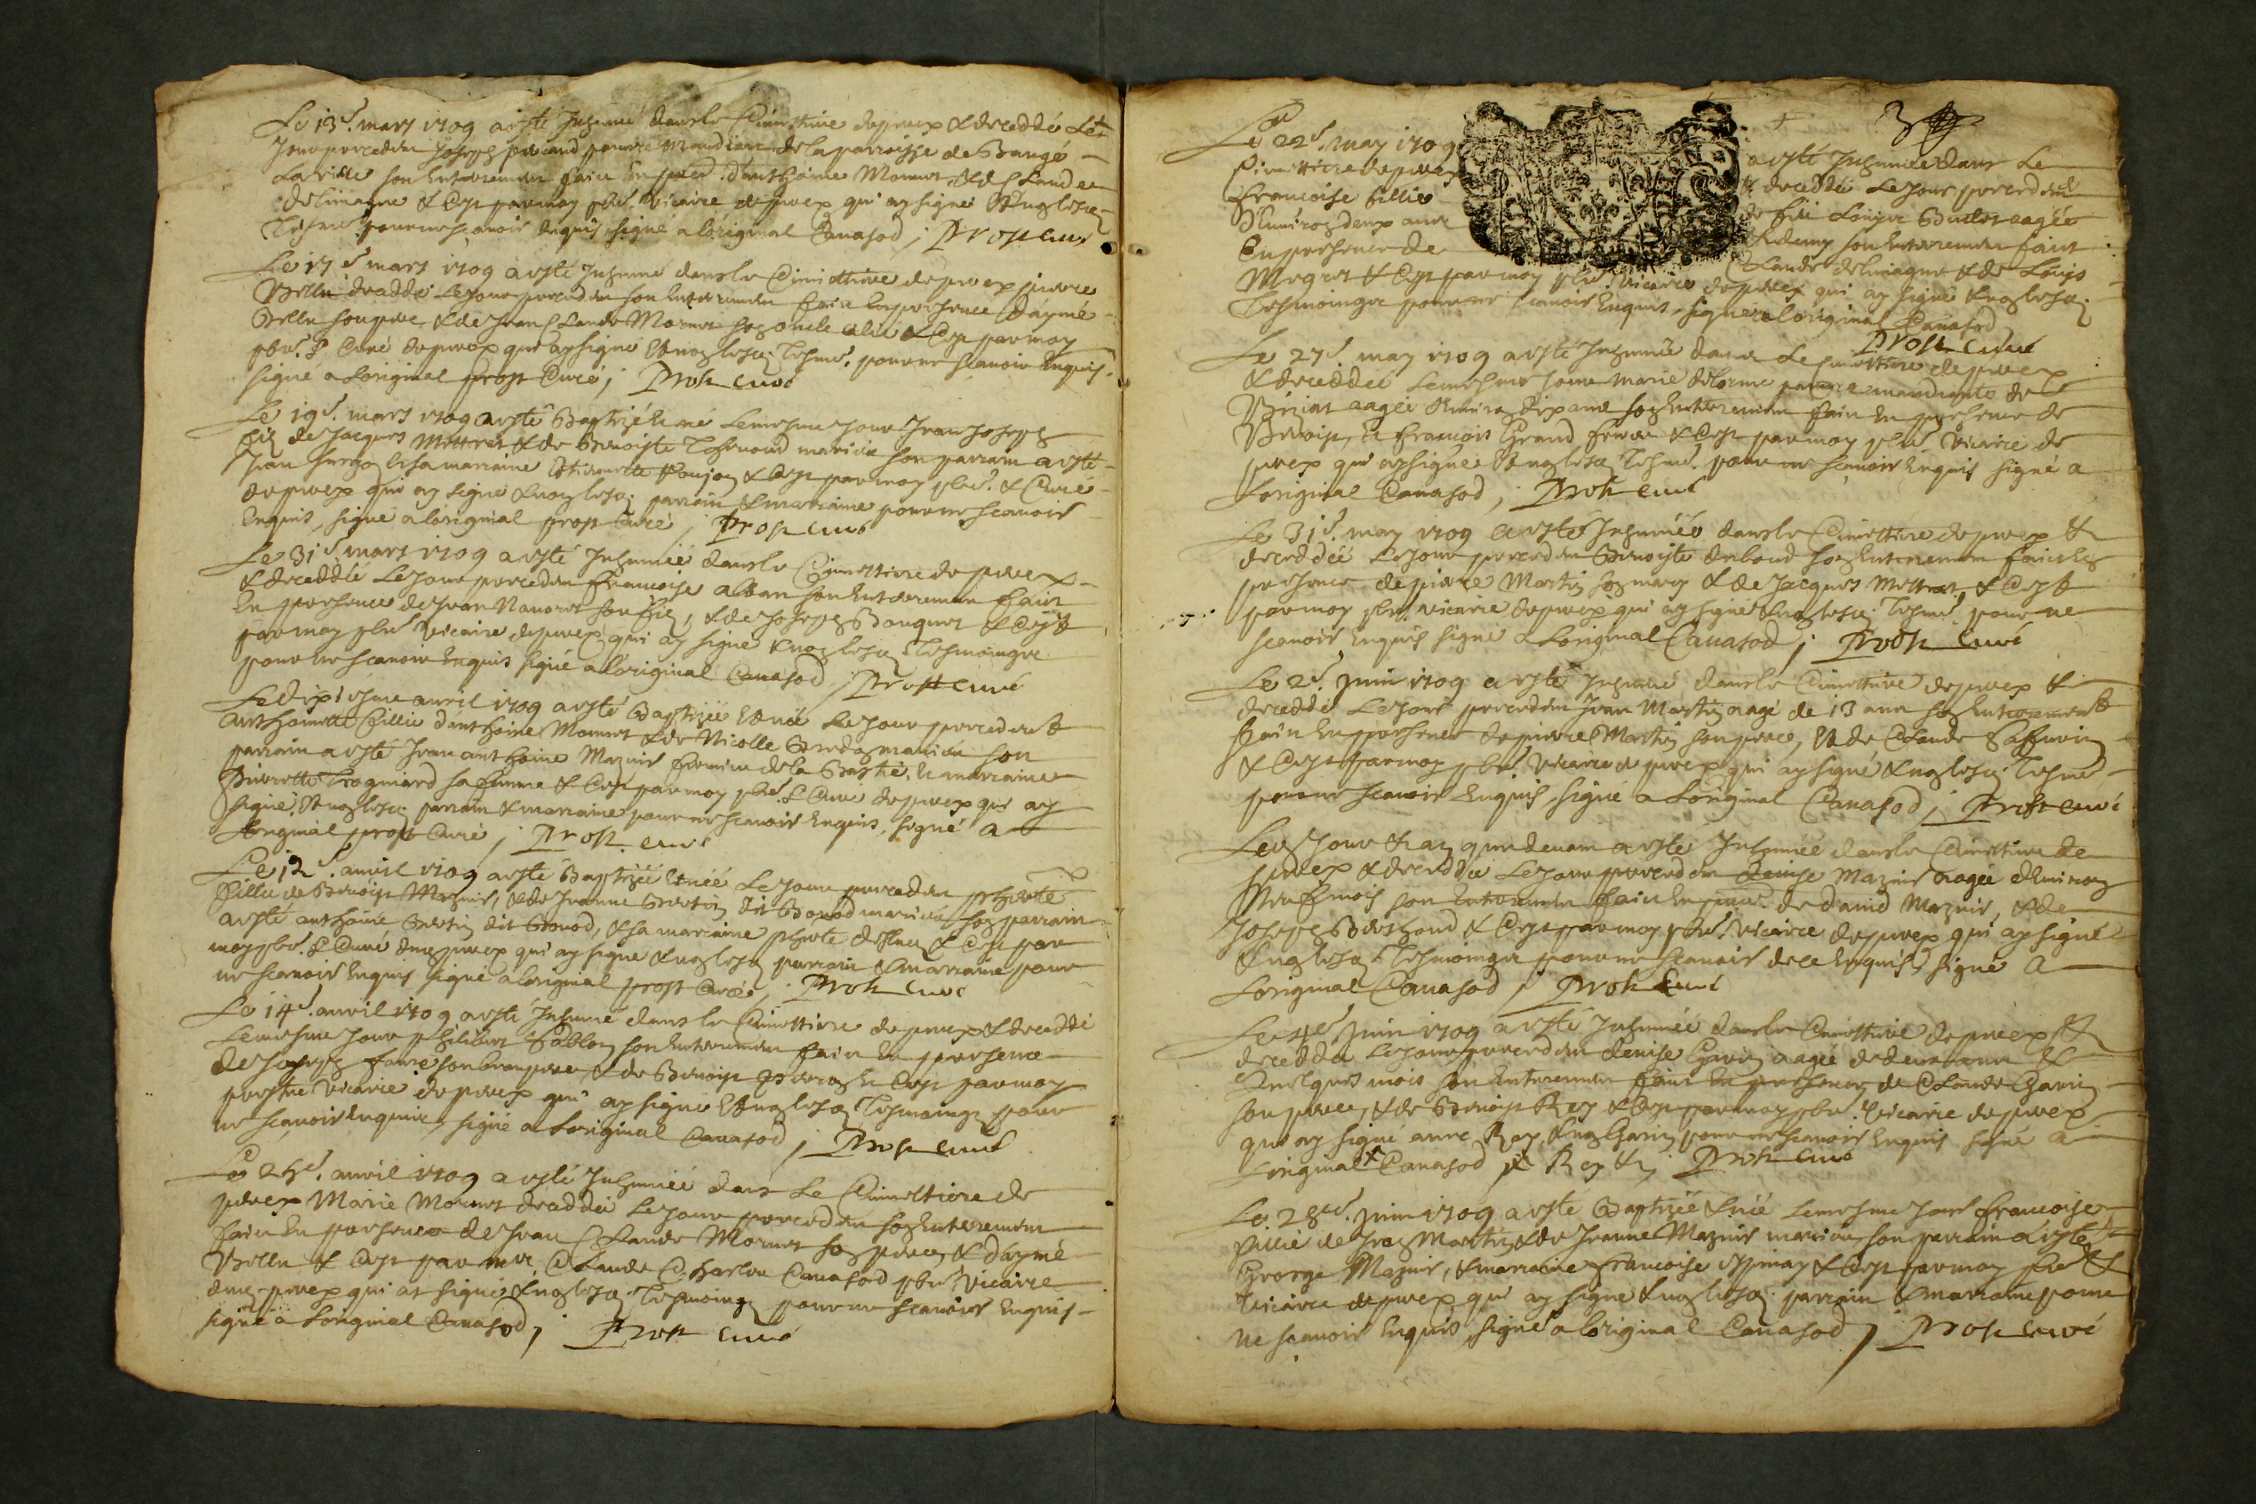 Le 13e. mars 1709 a esté Inhumé dans le Cimettiere de prex & deceddé Le
Jour precedent Joseph pauvre mandiant de la parroisse de Baugé
La ville son Enterement fait En d'anthoine Monnet & de Claude
& C'est par moy pbre. vicaire de prex qui ay signé &
pour ne scavoir Enquis signé a l'original Canasod ; Prost curé
Le 17e mars 1709 a esté Inhumé dans le Cimettiere de prex pierre
Vellu deceddé Le Jour precedent son Enterement fait En presence d'aymé
Vellu son pere & de Jean Claude Mornet son oncle & C'est par moy
pbre. & Curé de prex qui ay signé & non lesd. Tesm. pour ne scavoir Enquis.
signé a Loriginal prost Curé ; Prost curé
Le 19e. mars 1709 a esté Baptizé & né Le mesme Jour Jean Joseph
fils de Jacques Mettret & de Benoiste mariés son parrain a esté
Jean & sa marraine & C'est par moy pbre. & Curé
de prex qui ay signé & non lesd. parrain & marraine pour ne scavoir
Enquis, signé a loriginal prost Curé ; Prost curé
Le 31e. mars 1709 a esté Inhumée dans le Cimettiere de prex
& deceddée Le Jour precedent francoise alban son Enterement fait
En presence de Jean son fils, & de Joseph Bouquet & C'est
par moy pbre vicaire de prex qui ay signé & non lesd. Tesmoings
pour ne scavoir Enquis signé a l'original Canasod ; Prost curé
Le dixiesme avril 1709 a esté Baptizée & née Le Jour precedent
anthoinette fillie d'anthoine Monnet & de Nicolle mariés son
parrain a esté Jean anthoine Maznir fermier de la Bastie, & marraine
Pierrette sa femme & C'est par moy pbre. & Curé de prex qui ay
signé & non lesd. parrain & marraine pour ne scavoir Enquis signé a
Loriginal prost Curé ; Prost curé
Le 12e. avril 1709 a esté Baptizée & née Le Jour precedent
fillie de Benoist Maznir, & de Jeanne Bertin dit Bonod mariés son parrain
a esté anthoine Bertin dit Bonod, & sa marraine & C'est par
moy pbre. & Curé dud. prex qui ay signé & non lesd. parrain & marraine pour
ne scavoir Enquis signé a loriginal prost Curé ; Prost curé
Le 14e. avril 1709 a esté Inhumé dans le Cimettiere de prex & decedé
Le mesme Jour philibert Sablon son Enterement fait En presence
de Joseph son beaupere & de Benoist & C'est par moy
prestre vicaire de prex qui ay signé & non lesd. Tesmoings pour
ne scavoir Enquis, signé a Loriginal Canasod ; Prost curé
Le 25e. avril 1709 a esté Inhumée dans Le Cimettiere de
prex Marie Mornet decedée Le Jour precedent son Enterement
fait En presence de Jean Claude Mornet son pere, & d'aymé
Vellu & C'est par moy Claude Charles Canasod pbre vicaire
dud. prex qui ay signé & non lesd. Tesmoings pour ne scavoir Enquis
signé a Loriginal Canasod ; Prost curé
3
Le 22e. may 1709 a esté Inhumée dans Le
Cimettiere de prex & deceddée Le Jour precedent
francoise fillie de feu Louis Buclet aagée
d'Environ deux ans & demy son Enterement fait
En presence de Claude & de Louis
Megret & C'est par moy pbre. vicaire de prex qui ay signé & non lesd.
Tesmoings pour ne scavoir Enquis, signé a l'original Canasod
Prost curé
Le 27e. may 1709 a esté Inhumée dans Le Cimettiere de prex
& deceddée Le mesme Jour marie delorme pauvre mandiante de
Viriat aagée d'Environ dix ans son Enterement fait En presence de
Benoist, & francois Grand freres & C'est par moy pbre vicaire de
prex qui ay signé & non lesd. Tesm. pour ne scavoir Enquis signé a
Loriginal Canasod ; Prost curé
Le 31e. may 1709 a esté Inhumée dans le Cimettiere de prex &
deceddée Le Jour precedent Benoiste son Enterement fait En
presence de pierre Martin son mary & de Jacques Mettret, & C'est
par moy pbre. vicaire de prex qui ay signé & non lesd. Tesm. pour ne
scavoir Enquis signé a Loriginal Canasod ; Prost curé
Le 2e. juin 1709 a esté Inhumé dans le Cimettiere de prex &
deceddé Le Jour precedent Jean Martin aagé de 13 ans son Enterement
fait En presence de pierre Martin son pere, & de Claude
& C'est par moy pbre vicaire de prex qui ay signé & non lesd. Tesm.
pour ne scavoir Enquis, signé a Loriginal Canasod ; Prost curé
Les Jour & an que devant a esté Inhumée dans le Cimettiere de
prex & deceddée Le Jour precedent denise Maznir aagée d'Environ
neuf mois son Enterement fait En de david Maznir, & de
Joseph & C'est par moy pbre. vicaire de prex qui ay signé
& non lesd. Tesmoings pour ne scavoir de ce Enquis signé a
Loriginal Canasod ; Prost Curé
Le 4e juin 1709 a esté Inhumée dans le Cimettiere de prex &
deceddée Le Jour precedent denise Garin aagée de deux ans &
quelques mois son Enterement fait En presence de Claude Garin
son pere, & de Benoist Rey & C'est par moy pbre. vicaire de prex
qui ay signé avec Rey & non Garin pour ne scavoir Enquis signé a
Loriginal Canasod & Rey ; Prost curé
Le 28e. juin 1709 a esté Baptizée & née Le mesme Jour francoise
fillie de Jean Martin & de Jeanne Maznir mariés, son parrain a esté
George Maznir, & marraine francoise & C'est par moy pbre &
vicaire de prex qui ay signé & non lesd. parrain & marraine pour
ne scavoir Enquis, signé a loriginal Canasod ; Prost curé